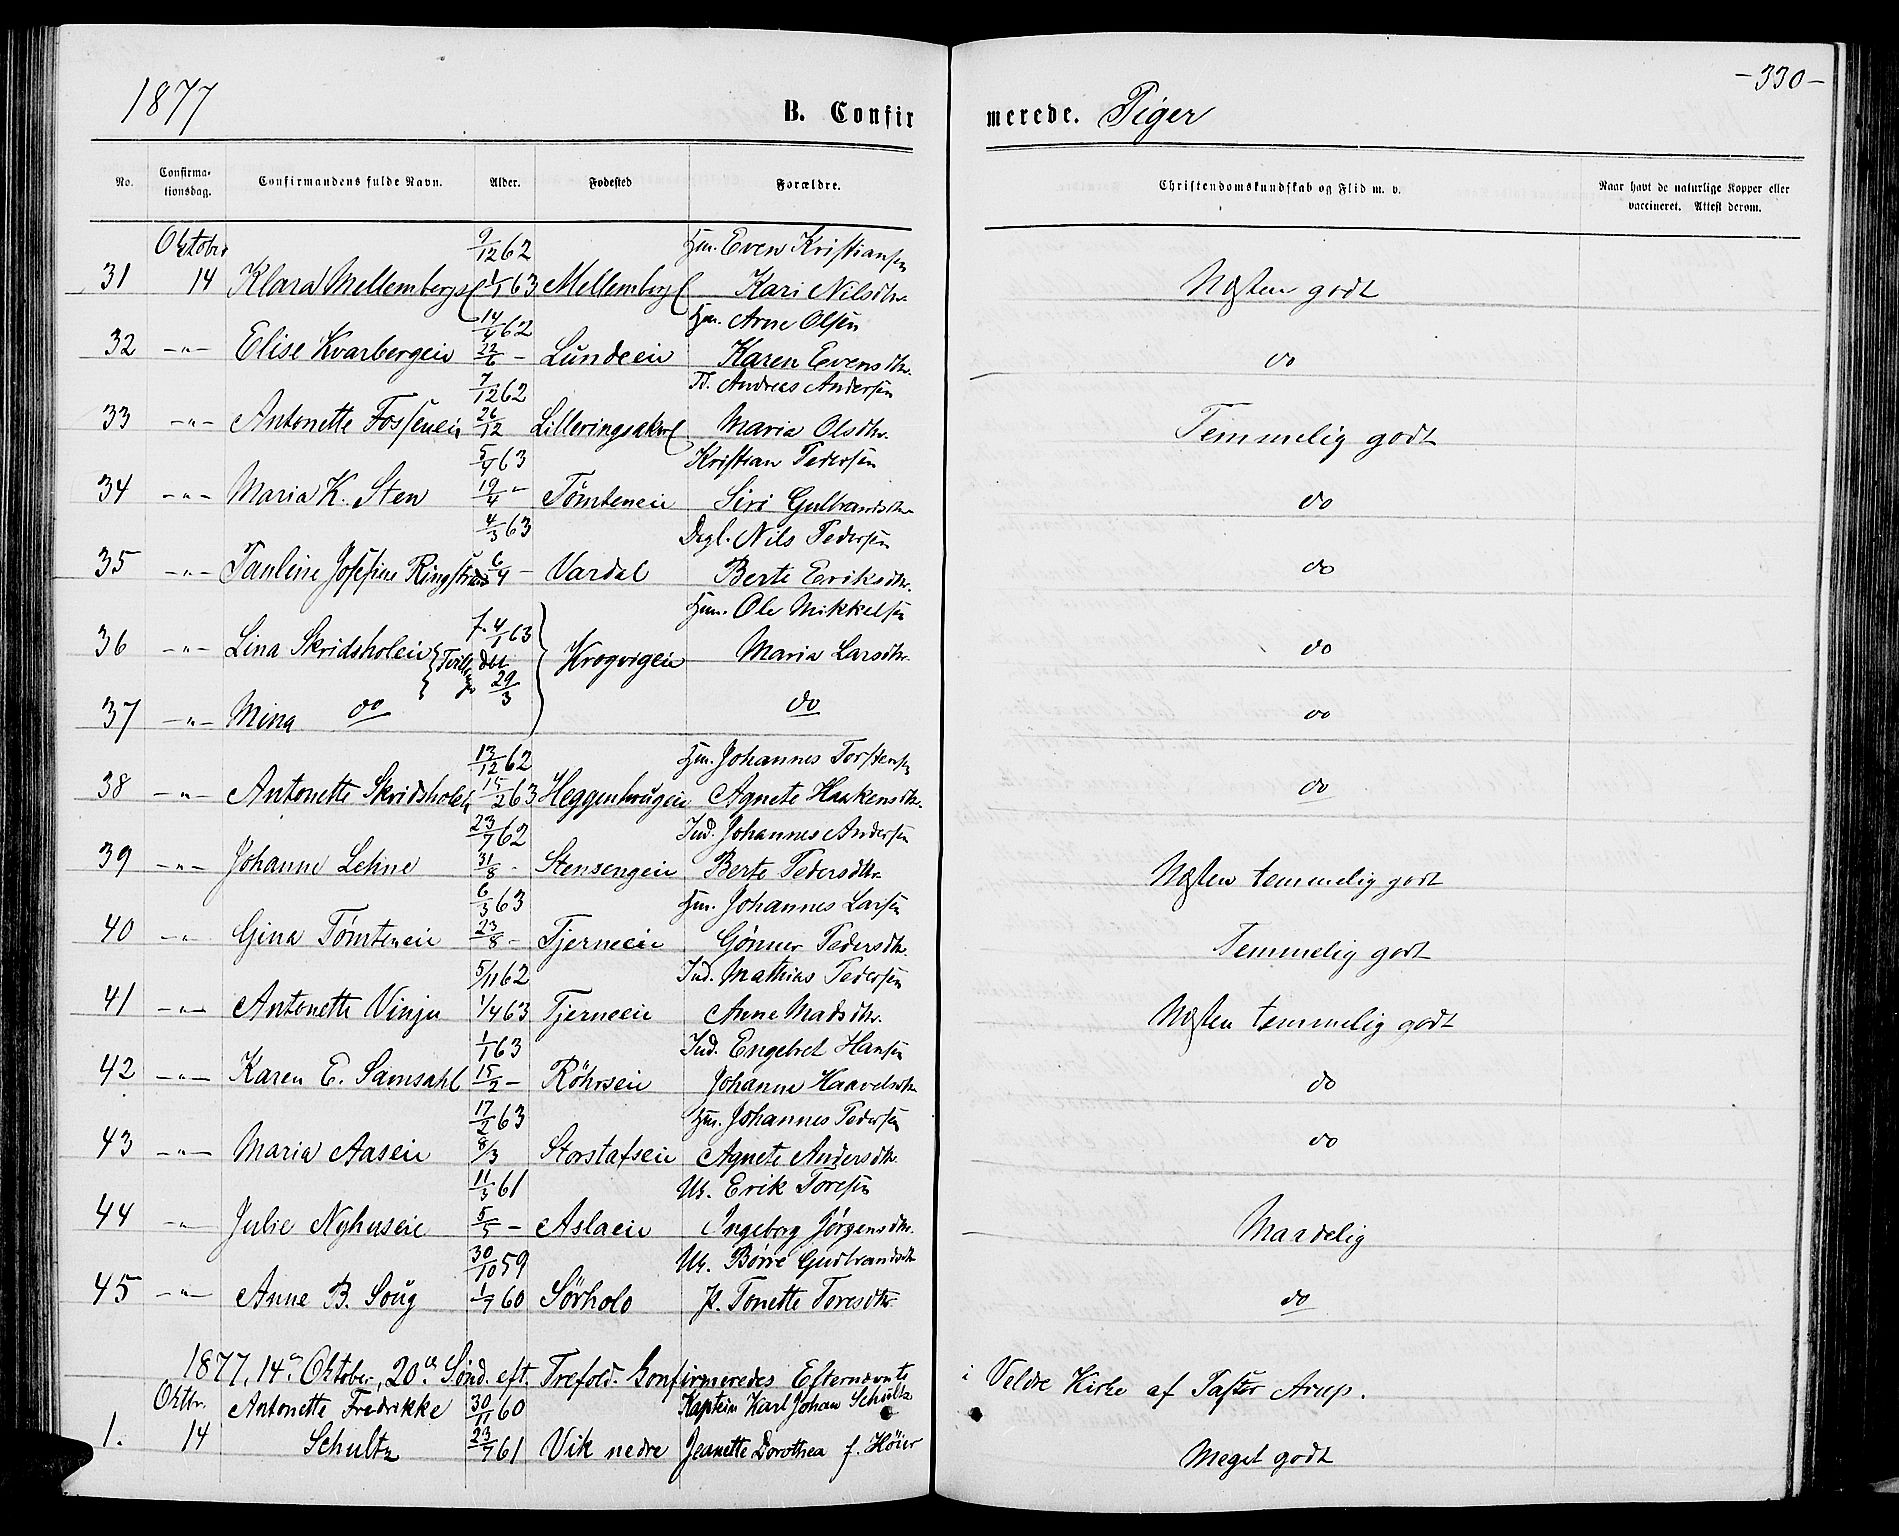 1877 B. Confirmerede. Piger -330-
No. Confirmationsdag. Confirmandens fulde Navn. Alder. Fødested Forældre. Christendomskundskab og Flid m. v. Naar havt de naturlige Kopper eller vaccineret. Attest derom.
Oktober 9/12 62 Hm. Even Kristiansen
31 14 Klara Mellemberg 1/1 63 Mellemberg Kari Nilsdtr. Næsten godt
14/4 62 Hm. Arne Olsen
32 -"- Elise Kvarbergeie 22/6 - Lundeeie Karen Evensdtr. do
7/12 62 Td. Andreas Andersen
33 -"- Antonette Fosseneie 26/12 Lilleringsaker Maria Olsdtr. Temmelig godt
5/4 63 Kristian Pedersen
34 -"- Maria K. Sten 19/4 - Tømteneie Siri Gulbrandsdtr. do
4/3 63 Dagl. Nils Pedersen
35 -"- Pauline Josefine Ringstrand 6/4 - Vardal Berte Eriksdtr. do
Hm. Ole Mikkelsen
36 -"- Lina Skridsholeie f. 4/1 63 Krogvigeie Maria Larsdtr. do
{Tvillinger døbt 29/3
37 -"- Mina do do do
13/12 62 Hm. Johannes Torstensen
38 -"- Antonette Skridsholeie 15/2 63 Heggenhaugeie Agnete Haakensdtr. do
23/7 62 Ind. Johannes Andersen
39 -"- Johanne Lehne 31/8 - Stensengeie Berte Pedersdtr. Næsten temmelig godt
6/3 63 Hm. Johannes Larsen
40 -"- Gina Tømteneie 23/8 - Tjerneeie Gønner Pedersdtr. Temmelig godt
5/11 62 Ind. Mathias Pedersen
41 -"- Antonette Vinju 1/4 63 Tjerneeie Anne Madsdtr. Næsten temmelig godt
1/1 63 Ind. Engebret Hansen
42 -"- Karen E. Samsahl 15/2 - Röhrseie Johanne Haavelsdtr. do
17/2 63 Hm. Johannes Pedersen
43 -"- Maria Aaseie 8/3 Storstafseie Agnete Andersdtr. do
11/3 61 Uk. Erik Toresen
44 -"- Julie Nyhuseie 5/5 - Aslaeie Ingeborg Jørgensdtr. Maadelig
30/10 59 Uk. Børre Gudbrandsdtr
45 -"- Anne B. Soug 1/7 60 Sörholo P. Tonette Toresdtr. do
1877, 14de Oktober, 20de Sønd. eft. Trefold. Confirmeredes Efternævnte i Veldre Kirke af Pastor Arup.
Oktbr. Antonette Fredrikke 30/11 60 Kaptein Karl Johan Schultz
1. 14 Schultz 23/7 61 Vik nedre Jeanette Dorothea f. Höier Meget godt